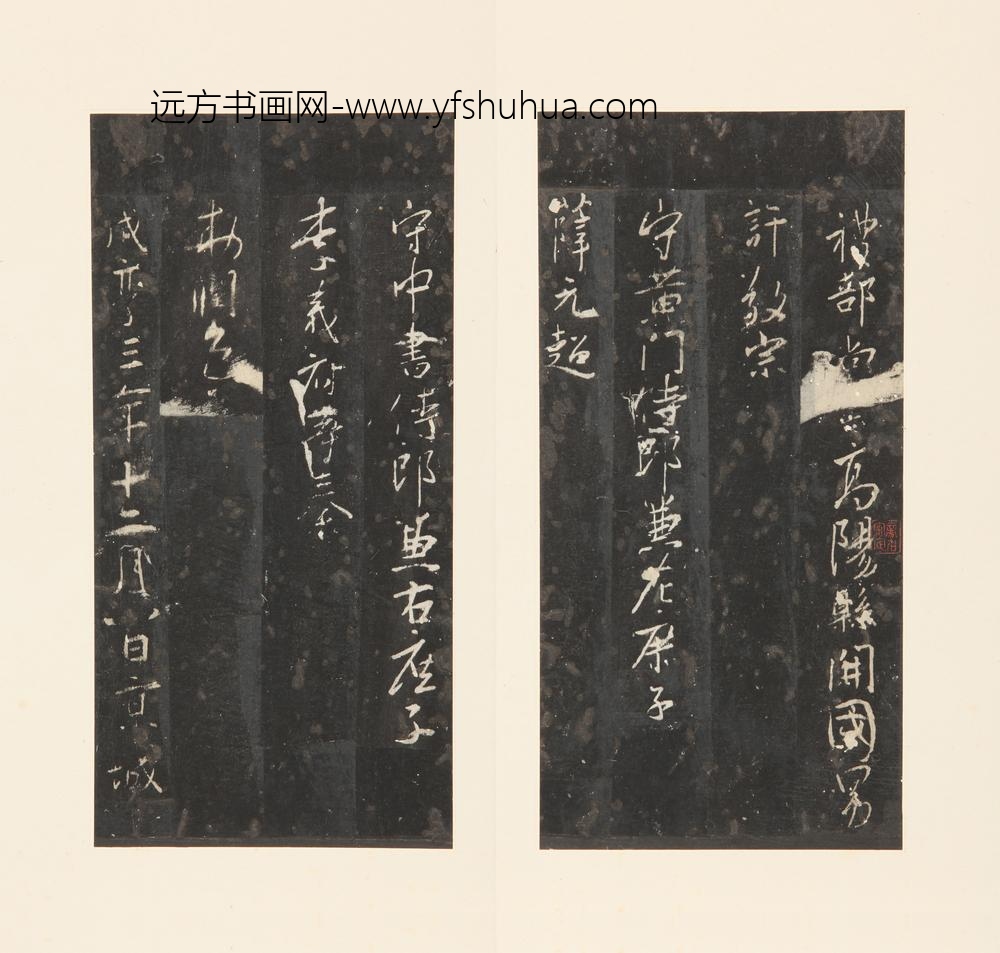 远方书画网-www.yfshuhua.com
禮部尚高陽縣開國男
許敬宗
守黄门侍郎兼左庶子
薛元超
守中書侍郎兼右庶子
李義府
咸亨三年十二月八日京城